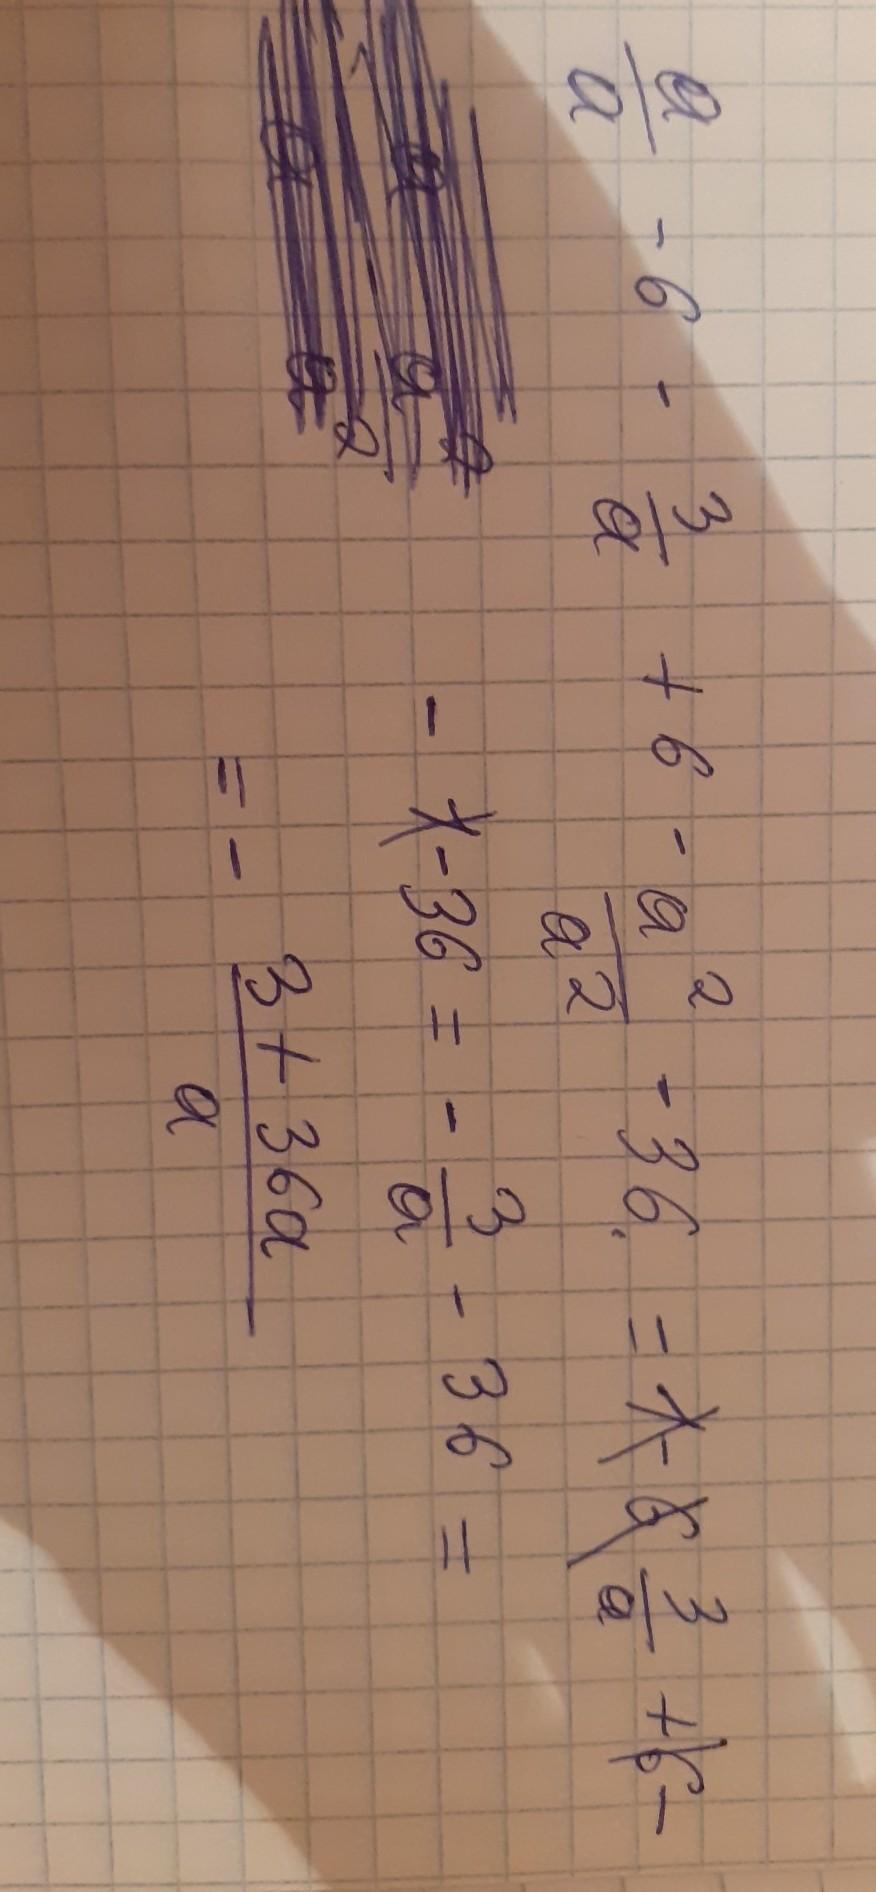 a/a - 6 - 3/a + 6 - a²/a² - 36 = 1 - 6 3/a + 6 -
- 1 - 36 = - 3/a - 36 =
= - (3 + 36a)/a